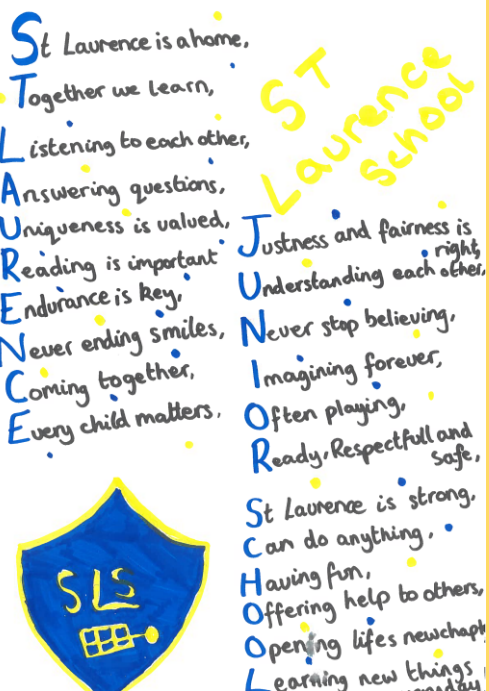 St Laurence is a home,
Together we learn,
Listening to each other,
Answering questions,
Uniqueness is valued,
Reading is important
Endurance is key,
Never ending smiles,
Coming together,
Every child matters.
ST
Laurence
School
Justness and fairness is
right,
Understanding each other,
Never stop believing,
Imagining forever,
Often playing,
Ready, Respectfull and
safe,
St Laurence is strong,
Can do anything,
Having fun,
Offering help to others,
Opening lifes newchapt
Learning new things
SLS